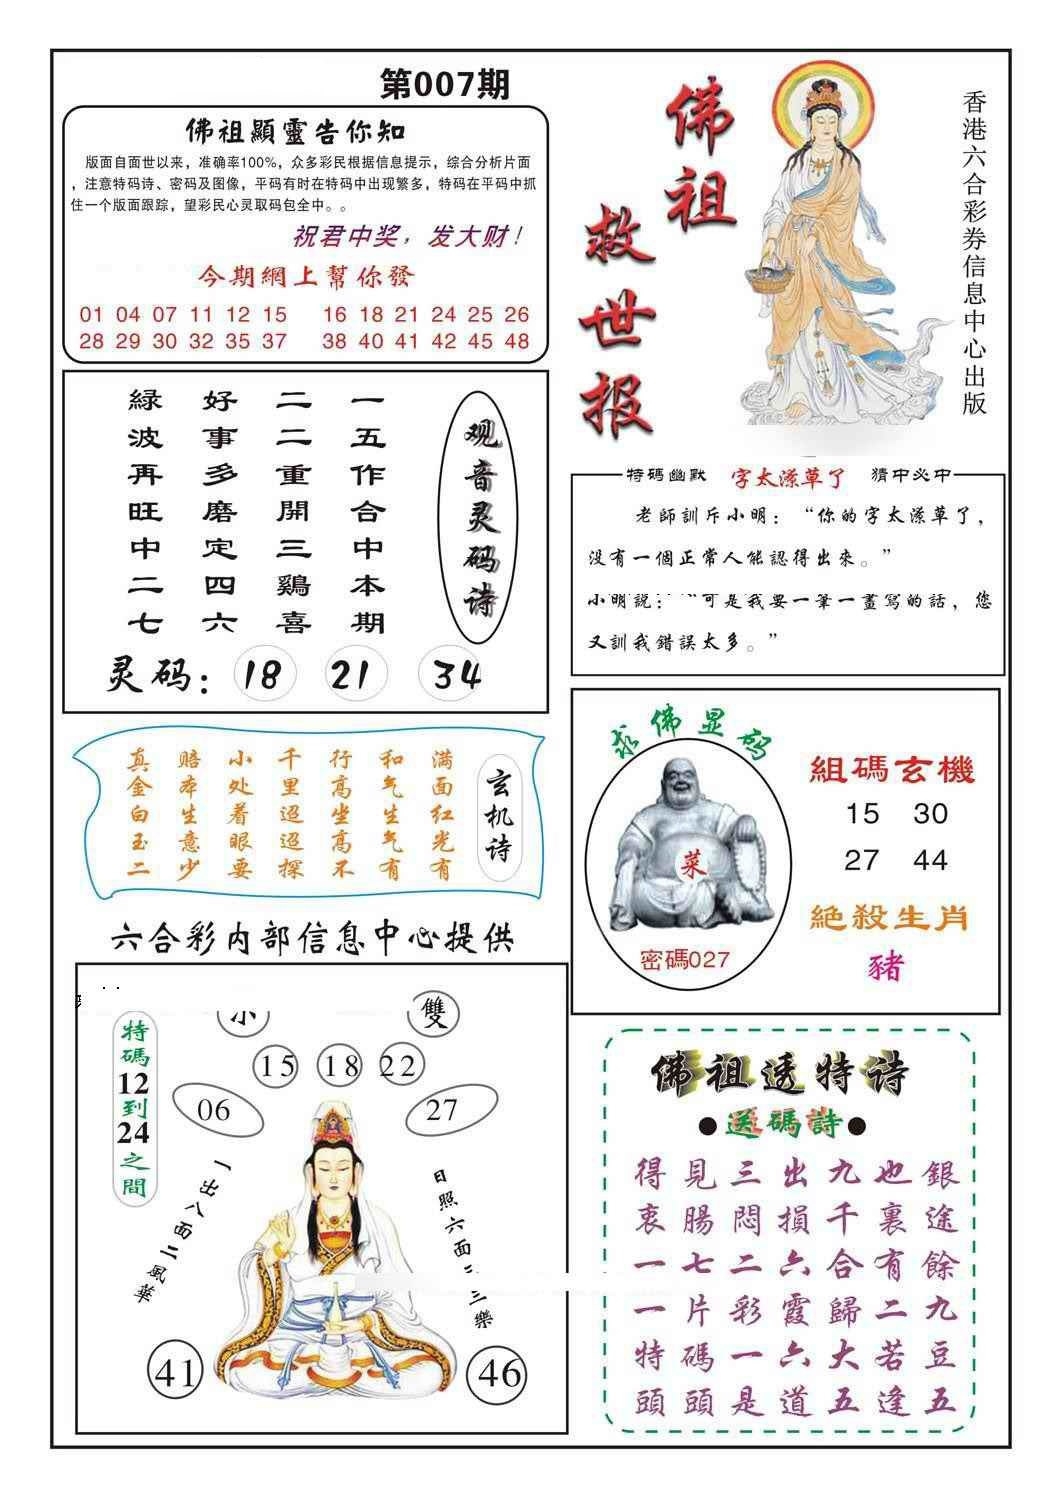 第007期
佛祖顯靈告你知
版面自面世以来，准确率100%，众多彩民根据信息提示，综合分析片面
，注意特码诗、密码及图像，平码有时在特码中出现繁多，特码在平码中抓
住一个版面跟踪，望彩民心灵取码包全中。。
祝君中奖，发大财！
今期網上幫你發
01 04 07 11 12 15 16 18 21 24 25 26
28 29 30 32 35 37 38 40 41 42 45 48
佛祖
救世报
香港六合彩券信息中心出版
观音灵码诗
一五作合中本期
二二重開三鷄喜
好事多磨定四六
緑波再旺中二七
灵码：18 21 34
特碼幽默 字太潦草了 猜中必中
老師訓斥小明：“你的字太潦草了，
没有一個正常人能認得出來。”
小明説：“可是我要一筆一畫寫的話，您
又訓我錯誤太多。”
玄机诗
满面红光有
和气生气有
行高坐高不
千里迢迢探
小处着眼要
赔本生意少
真金白玉二
求佛显码
菜
密碼027
組碼玄機
15 30
27 44
絶殺生肖
豬
六合彩内部信息中心提供
小
雙
15 18 22
06 27
特碼12到24之間
一出八面二風華
日照六面三三樂
41 46
佛祖透特诗
●送碼詩●
得見三出九也銀
衷腸悶損千裏途
一七二六合有餘
一片彩霞歸二九
特碼一六大若豆
頭頭是道五逢五